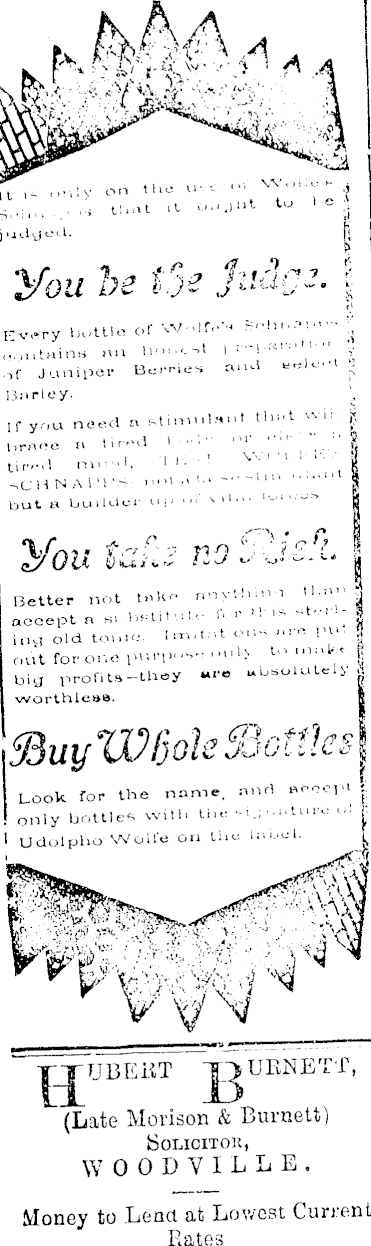 It is only on the use of Wolfe's
Schnapps that it ought to be
judged.
You be the Judge.
Every bottle of Wolfe's Schnapps
contains an honest preparation
of Juniper Berries and select
Barley.
If you need a stimulant that will
brace a tired body or
tired mind, WOLFE'S
SCHNAPPS not a stimulant
but a builder up of vital forces
You take no Risk.
Better not take anything than
accept a substitute for this sterl-
ing old tonic. Imitations are put
out for one purpose only to make
big profits—they are absolutely
worthless.
Buy Whole Bottles
Look for the name, and accept
only bottles with the signature of
Udolpho Wolfe on the label.
HUBERT BURNETT,
(Late Morison & Burnett)
SOLICITOR,
WOODVILLE.
Money to Lend at Lowest Current
Rates